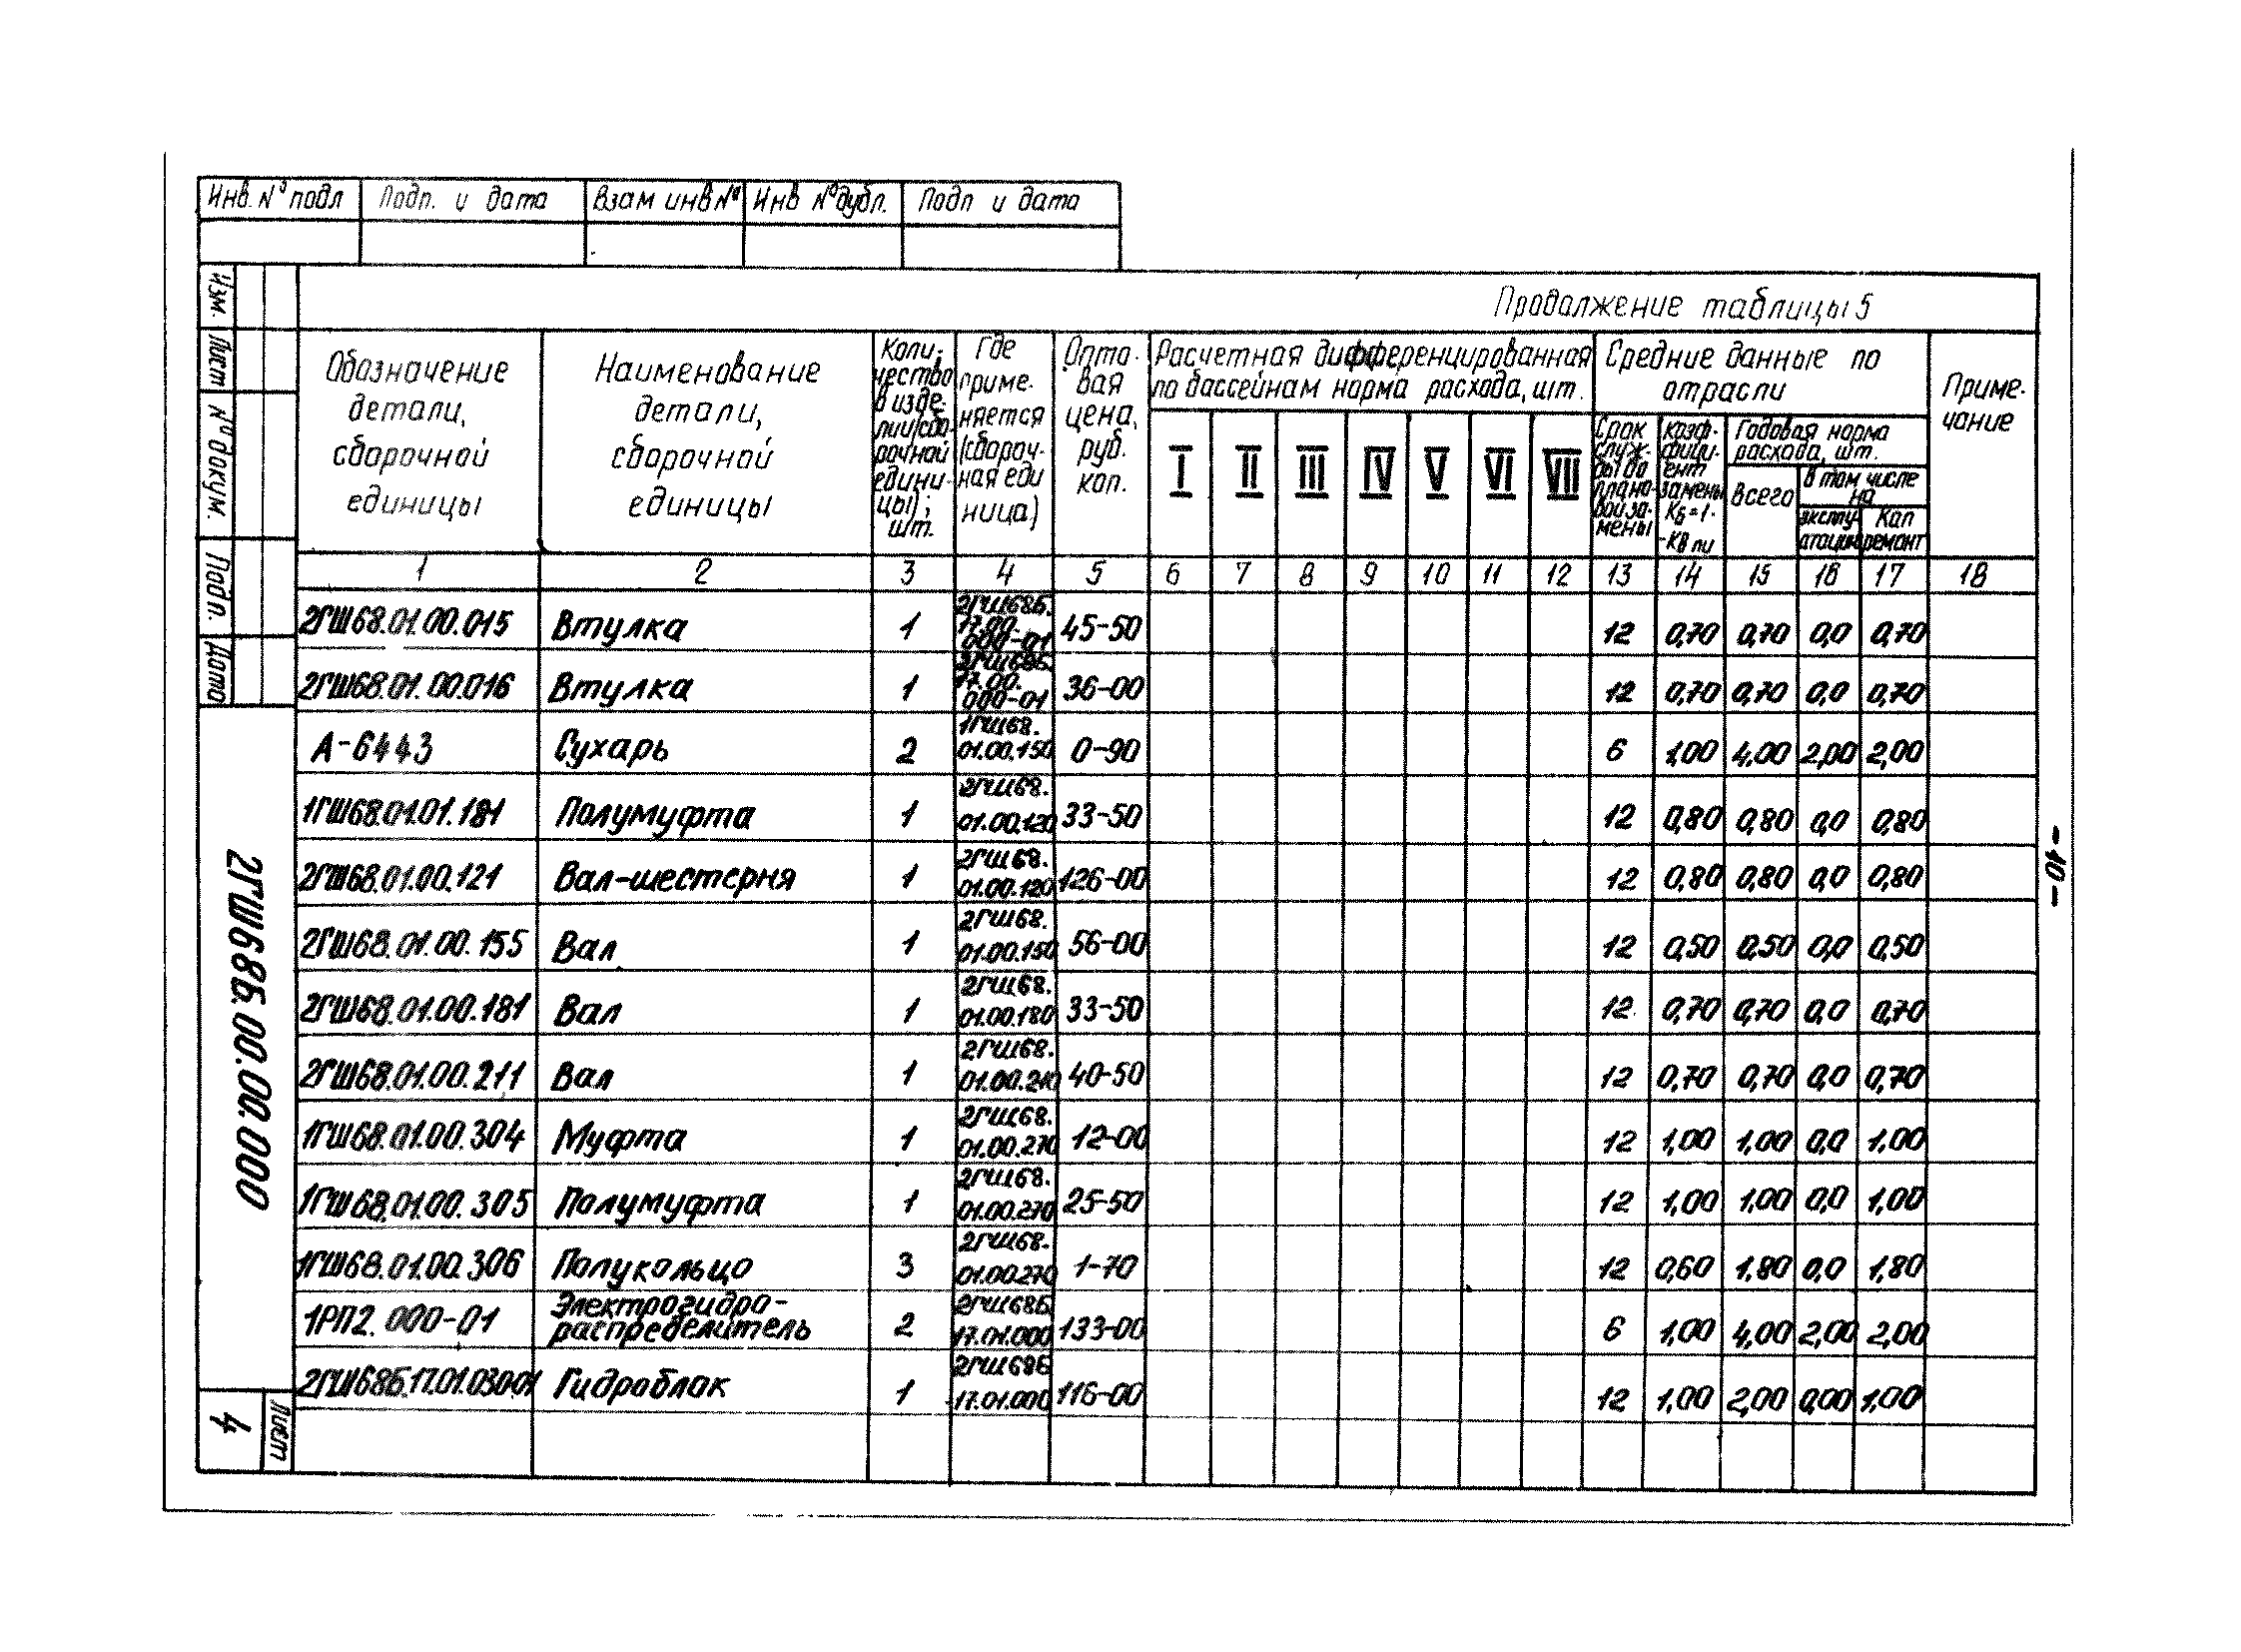 Инв. № подл Подп. и дата Взам инв № Инв № дубл. Подп и дата
Изм. Лист № докум. Подп. Дата
Продолжение таблицы 5
Обозначение
детали,
сборочной
единицы
Наименование
детали,
сборочной
единицы
Коли-
чество
в изде-
лии (сбо-
рочной
едини-
цы);
шт.
Где
приме-
няется
(сбороч-
ная еди
ница)
Опто-
вая
цена,
руб.
коп.
Расчетная дифференцированная
по бассейнам норма расхода, шт.
I II III IV V VI VII
Средние данные по
отрасли
Срок
служ-
бы до
плано-
вой за-
мены
Коэф-
фици-
ент
замены
Кб = 1-
-Кв ли
Годовая норма
расхода, шт.
всего
в том числе
на
эксплу-
атацию
Кап
ремонт
Приме-
чание
1 2 3 4 5 6 7 8 9 10 11 12 13 14 15 16 17 18
2ГШ68.01.00.015 Втулка 1 2ГШ68Б.17.00.000-01 45-50 12 0,70 0,70 0,0 0,70
2ГШ68.01.00.016 Втулка 1 2ГШ68Б.17.00.000-01 36-00 12 0,70 0,70 0,0 0,70
А-6443 Сухарь 2 1ГШ68.01.00.150 0-90 6 1,00 4,00 2,00 2,00
1ГШ68.01.01.181 Полумуфта 1 2ГШ68.01.00.120 33-50 12 0,80 0,80 0,0 0,80
2ГШ68.01.00.121 Вал-шестерня 1 2ГШ68.01.00.120 126-00 12 0,80 0,80 0,0 0,80
2ГШ68.01.00.155 Вал 1 2ГШ68.01.00.150 56-00 12 0,50 0,50 0,0 0,50
2ГШ68.01.00.181 Вал 1 2ГШ68.01.00.180 33-50 12 0,70 0,70 0,0 0,70
2ГШ68.01.00.211 Вал 1 2ГШ68.01.00.210 40-50 12 0,70 0,70 0,0 0,70
1ГШ68.01.00.304 Муфта 1 2ГШ68.01.00.270 12-00 12 1,00 1,00 0,0 1,00
1ГШ68.01.00.305 Полумуфта 1 2ГШ68.01.00.270 25-50 12 1,00 1,00 0,0 1,00
1ГШ68.01.00.306 Полукольцо 3 2ГШ68.01.00270 1-70 12 0,60 1,80 0,0 1,80
1РП2.000-01 Электрогидро-
распределитель 2 2ГШ68Б.17.01.000 133-00 6 1,00 4,00 2,00 2,00
2ГШ68Б.17.01.030-01 Гидроблок 1 2ГШ68Б 17.01.000 116-00 12 1,00 2,00 0,00 1,00
2ГШ68Б.00.00.000
Лист
4
-10-